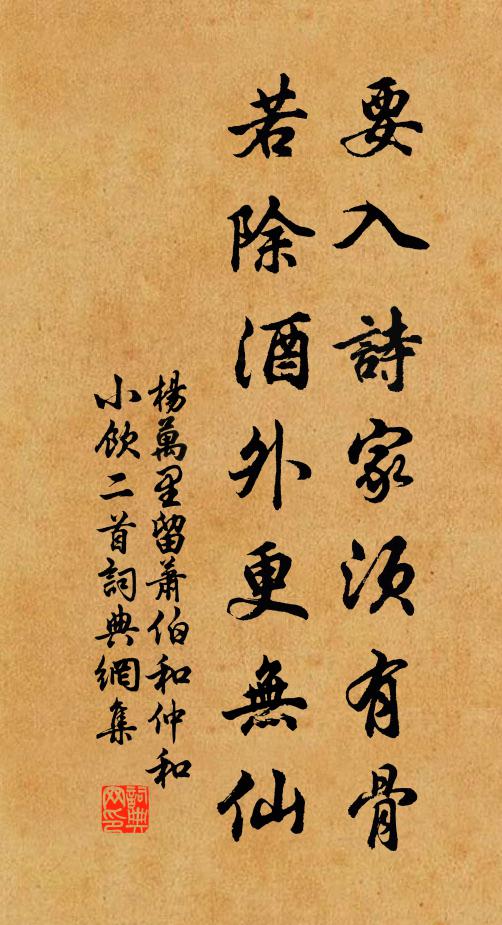 要入詩家須有骨
若除酒外更無仙
楊萬里留蕭伯和仲和
小飲二首詞典網集
詞典網印